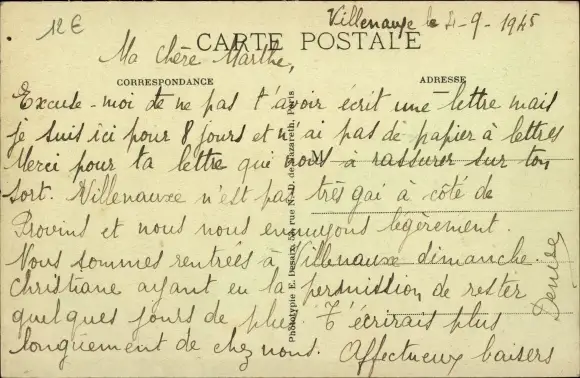 12 €
Villenauxe le 4-9-1945
CARTE POSTALE
Ma chère Marthe,
CORRESPONDANCE
ADRESSE
Excuse-moi de ne pas t'avoir écrit une lettre mais
je suis ici pour 8 jours et n'ai pas de papier à lettres
Merci pour ta lettre qui nous a rassurer sur ton
sort. Villenauxe n'est pas très gai à côté de
Provins et nous nous ennuyons légèrement.
Nous sommes rentrées à Villenauxe dimanche.
Christiane ayant eu la permission de rester
quelques jours de plus. T'écrirais plus
longuement de chez nous. Affectueux baisers
Denise
M
Phototypie E. Desaix, rue N.-D. de Nazareth, Paris